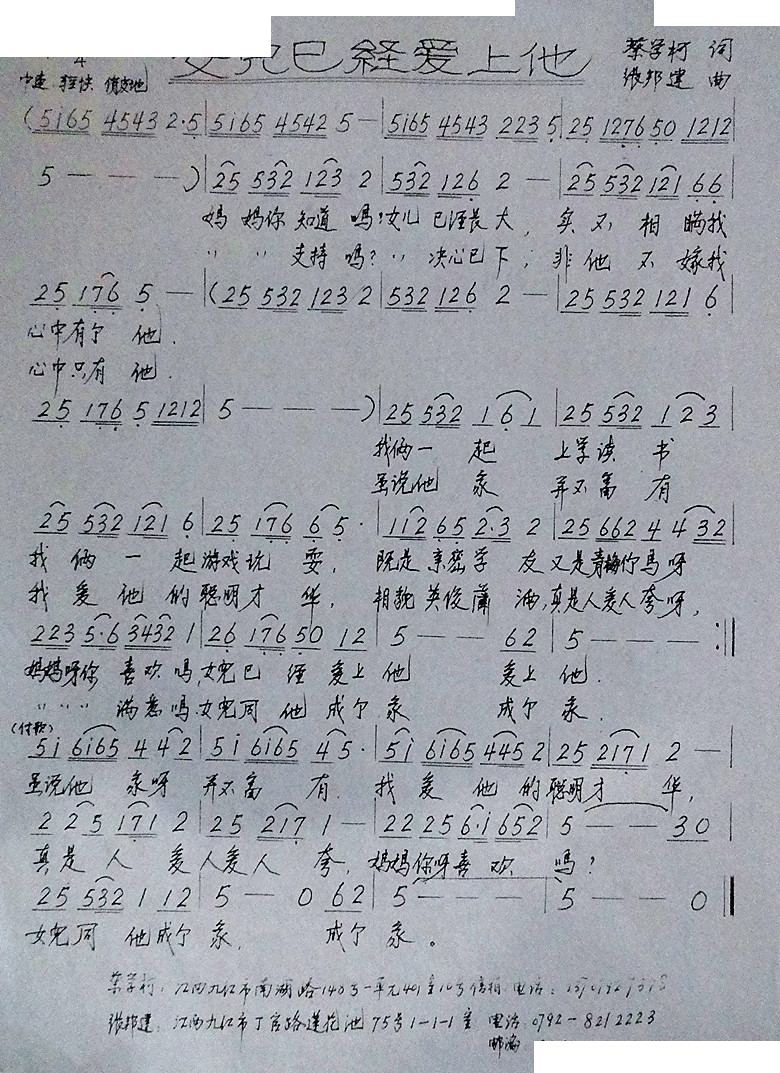 女兒已経爱上他
蔡学柯 词
中速 轻快 俏皮地
张邦建 曲
(5i65 4543 2·5|5i65 4542 5 —|5i65 4543 223 5|25 1276 50 1212|
5 — — —)|25 532 123 2|532 126 2 —|25 532 121 66|
妈妈你知道吗?女儿已经長大,实不相瞒我
〃 〃 支持吗?〃 决心已下,非他不嫁我
25 176 5 —|(25 532 123 2|532 126 2 —|25 532 121 6|
心中有了他.
心中只有他.
25 176 5 1212|5 — — —)|25 532 1 6 1|25 532 1 2 3|
我俩一起 上学读书
虽说他家 并不富有
25 532 121 6|25 176 6 5·|112 65 2·3 2|25 662 4 432|
我俩一起游戏玩耍,既是亲密学友又是青梅竹马呀
我爱他的聪明才华,相貌英俊潇洒,真是人爱人夸呀,
223 5·6 3432 1|26 176 50 12|5 — — 62|5 — — — :‖
妈妈呀你喜欢吗,女兒已经爱上他 爱上他.
〃 〃 〃 满意吗,女兒同他成了家 成了家.
(付歌)
5i 6i65 4 42|5i 6i65 4 5·|5i 6i65 445 2|25 2171 2 —|
虽说他家呀并不富有.我爱他的聪明才华,
2 25 171 2|25 217 1 —|22 25 6·i 652|5 — — 30|
真是人爱人爱人夸,妈妈你呀喜欢吗?
25 532 1 12|5 — 0 62|5 — — —|5 — — 0‖
女兒同他成了家,成了家。
蔡学柯:江西九江市南湖路140号一单元401室10号信箱 电话:
张邦建:江西九江市丁官路莲花池75号1-1-1室 电话:0792-8212223
邮编